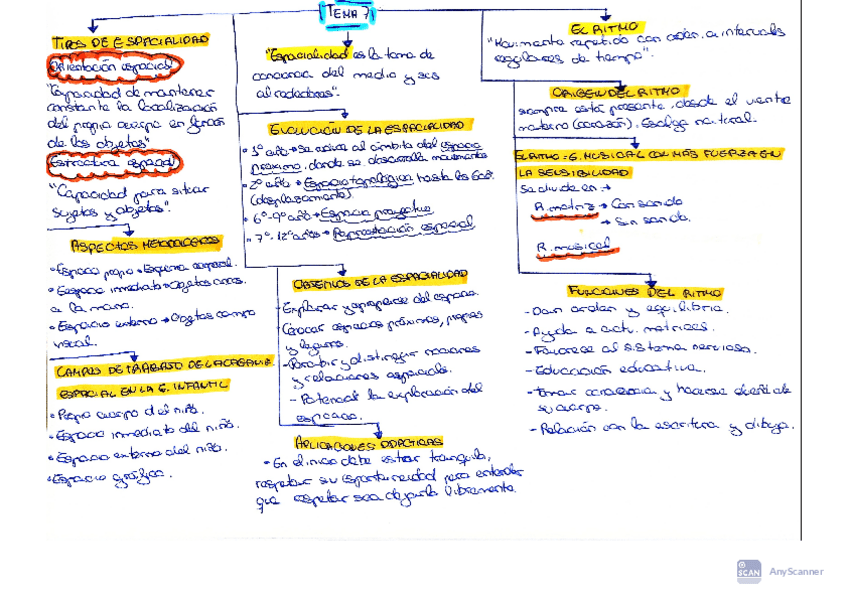 TEMA 7
TIPOS DE ESPACIALIDAD
Orientación espacial
"Capacidad de mantener
constante la localización
del propio cuerpo en función
de los objetos"
Estructura espacial
"Capacidad para situar
sujetos y objetos".
ASPECTOS METODOLÓGICOS
• Espacio propio → Esquema corporal.
• Espacio inmediato → Objetos cerca
a la mano.
• Espacio externo → Objetos campo
visual.
CAMPOS DE TRABAJO DE LA ORGANIZ.
ESPACIAL EN LA E. INFANTIL
• Propio cuerpo del niñ.
• Espacio inmediato del niñ.
• Espacio externo del niño.
• Espacio gráfico.
"Espacialidad es la toma de
conciencia del medio y sus
alrededores".
EVOLUCIÓN DE LA ESPACIALIDAD
• 1º año → Se activa al ámbito del espacio
próximo, donde se desarrolla movimientos
• 2º año → Espacio topológico hasta los 6 años
(desplazamiento).
• 6º-9º año → Espacio proyectivo
• 7º-12º años → Representación espacial
OBJETIVOS DE LA ESPACIALIDAD
- Explorar y apropiarse del espacio.
- Conocer espacios próximos, propios
y lejanos.
- Percibir y distinguir nociones
y relaciones espaciales.
- Potenciar la exploración del
espacio.
APLICACIONES DIDÁCTICAS
- En el inicio debe estar tranquilo,
respetar su espontaneidad para entender
que respetar sea dejarlo libremente.
EL RITMO
"Movimiento repetido con orden a intervalos
regulares de tiempo".
ORIGEN DEL RITMO
siempre está presente, desde el vientre
materno (corazón). Es algo natural.
EL RITMO: E. MUSICAL CON MÁS FUERZA EN
LA SENSIBILIDAD
Se divide en →
R. motriz → Con sonido
→ Sin sonido.
R. musical
FUNCIONES DEL RITMO
- Dan orden y equilibrio.
- Ayuda a activ. motrices.
- Favorece al sistema nervioso.
- Educación educativa.
- Tomar conciencia y hacerse dueño de
su cuerpo.
- Relación con la escritura y dibujo.
SCAN AnyScanner